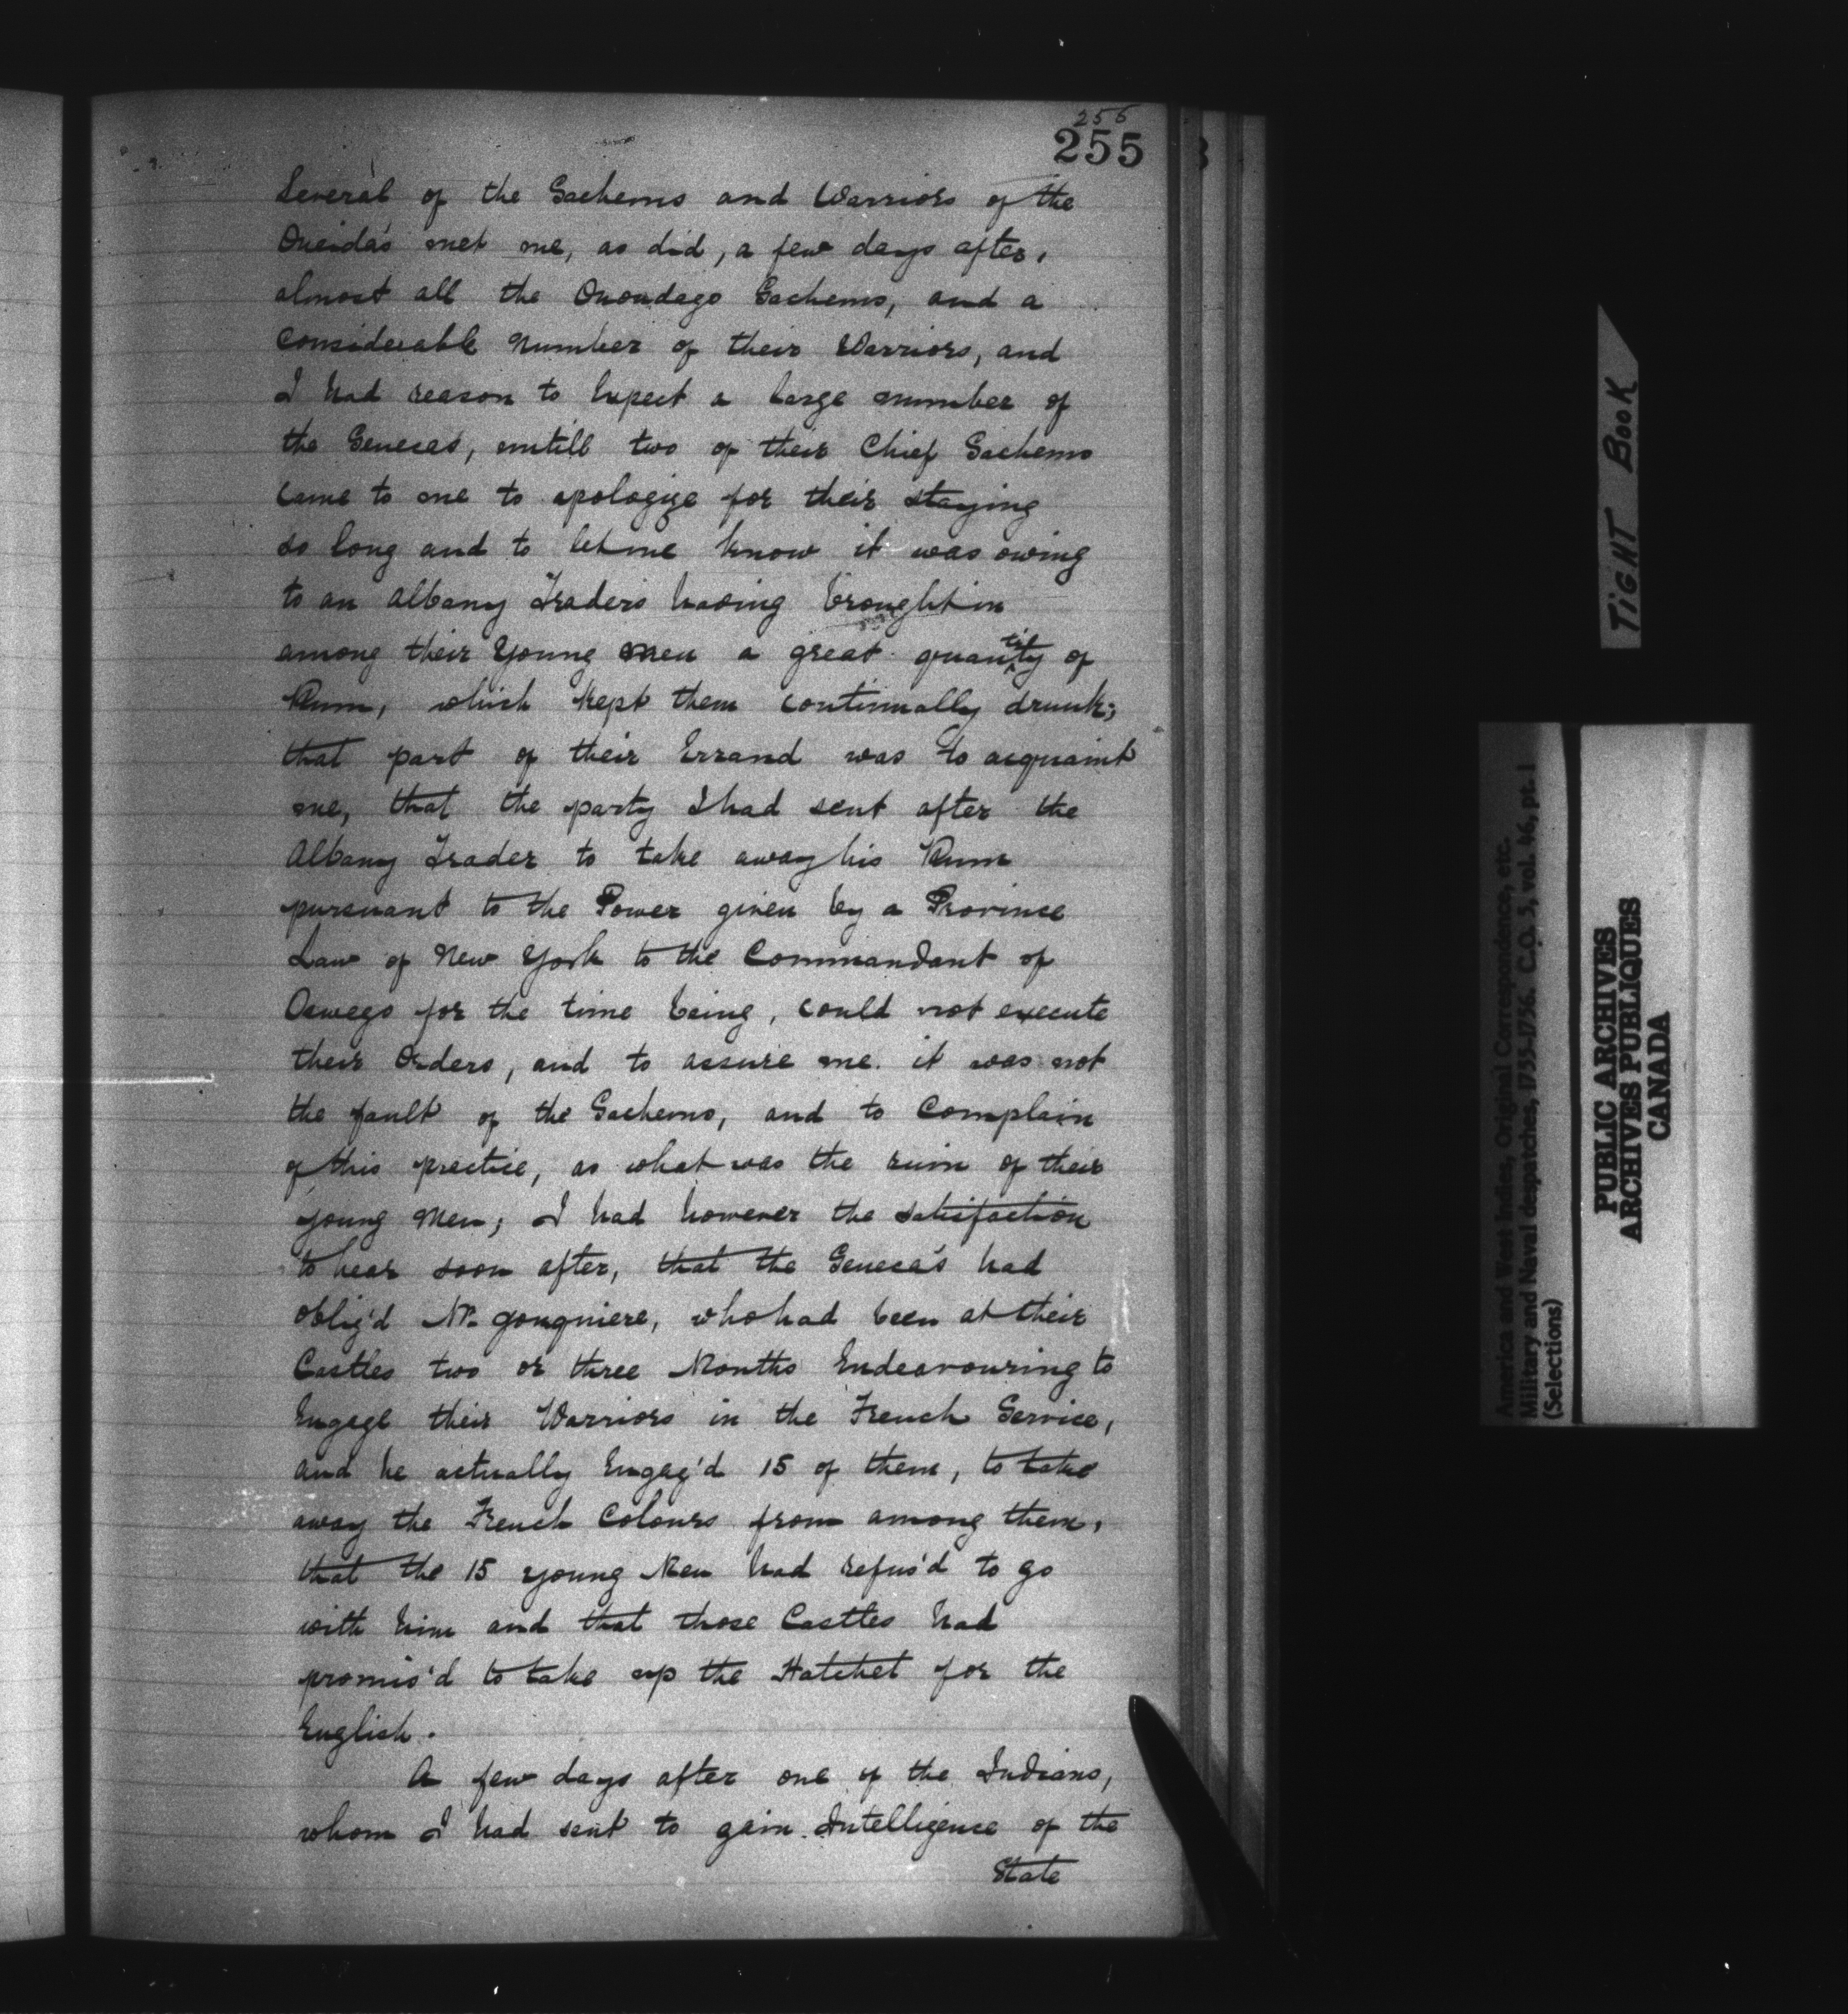 256
255
Several of the Sachems and Warriors of the
Oneida's met me, as did, a few days after,
almost all the Onondago Sachems, and a
Considerable Number of their Warriors, and
I had reason to Expect a large number of
the Senecas, untill two of their Chief Sachems
came to me to apologize for their staying
so long and to let me know it was owing
to an Albany Traders having brought in
among their Young Men a great quantity of
Rum, which kept them continually drunk;
that part of their Errand was to acquaint
me, that the party I had sent after the
Albany Trader to take away his Rum
pursuant to the Power given by a Province
Law of New York to the Commandant of
Oswego for the time being, could not execute
their Orders, and to assure me it was not
the fault of the Sachems, and to Complain
of this practice, as what was the ruin of their
young Men; I had however the satisfaction
to hear soon after, that the Seneca's had
oblig'd Mr. Jonquiere, who had been at their
Castles two or three Months Endeavouring to
Engage their Warriors in the French Service,
and he actually Engag'd 15 of them, to take
away the French Colours from among them,
that the 15 young Men had refus'd to go
with him and that those Castles had
promis'd to take up the Hatchet for the
English.
A few days after one of the Indians,
whom I had sent to gain Intelligence of the
State
TIGHT BOOK
America and West Indies, Original Correspondence, etc.
Military and Naval despatches, 1755-1756. C.O. 5, vol. 46, pt. 1
(Selections)
PUBLIC ARCHIVES
ARCHIVES PUBLIQUES
CANADA